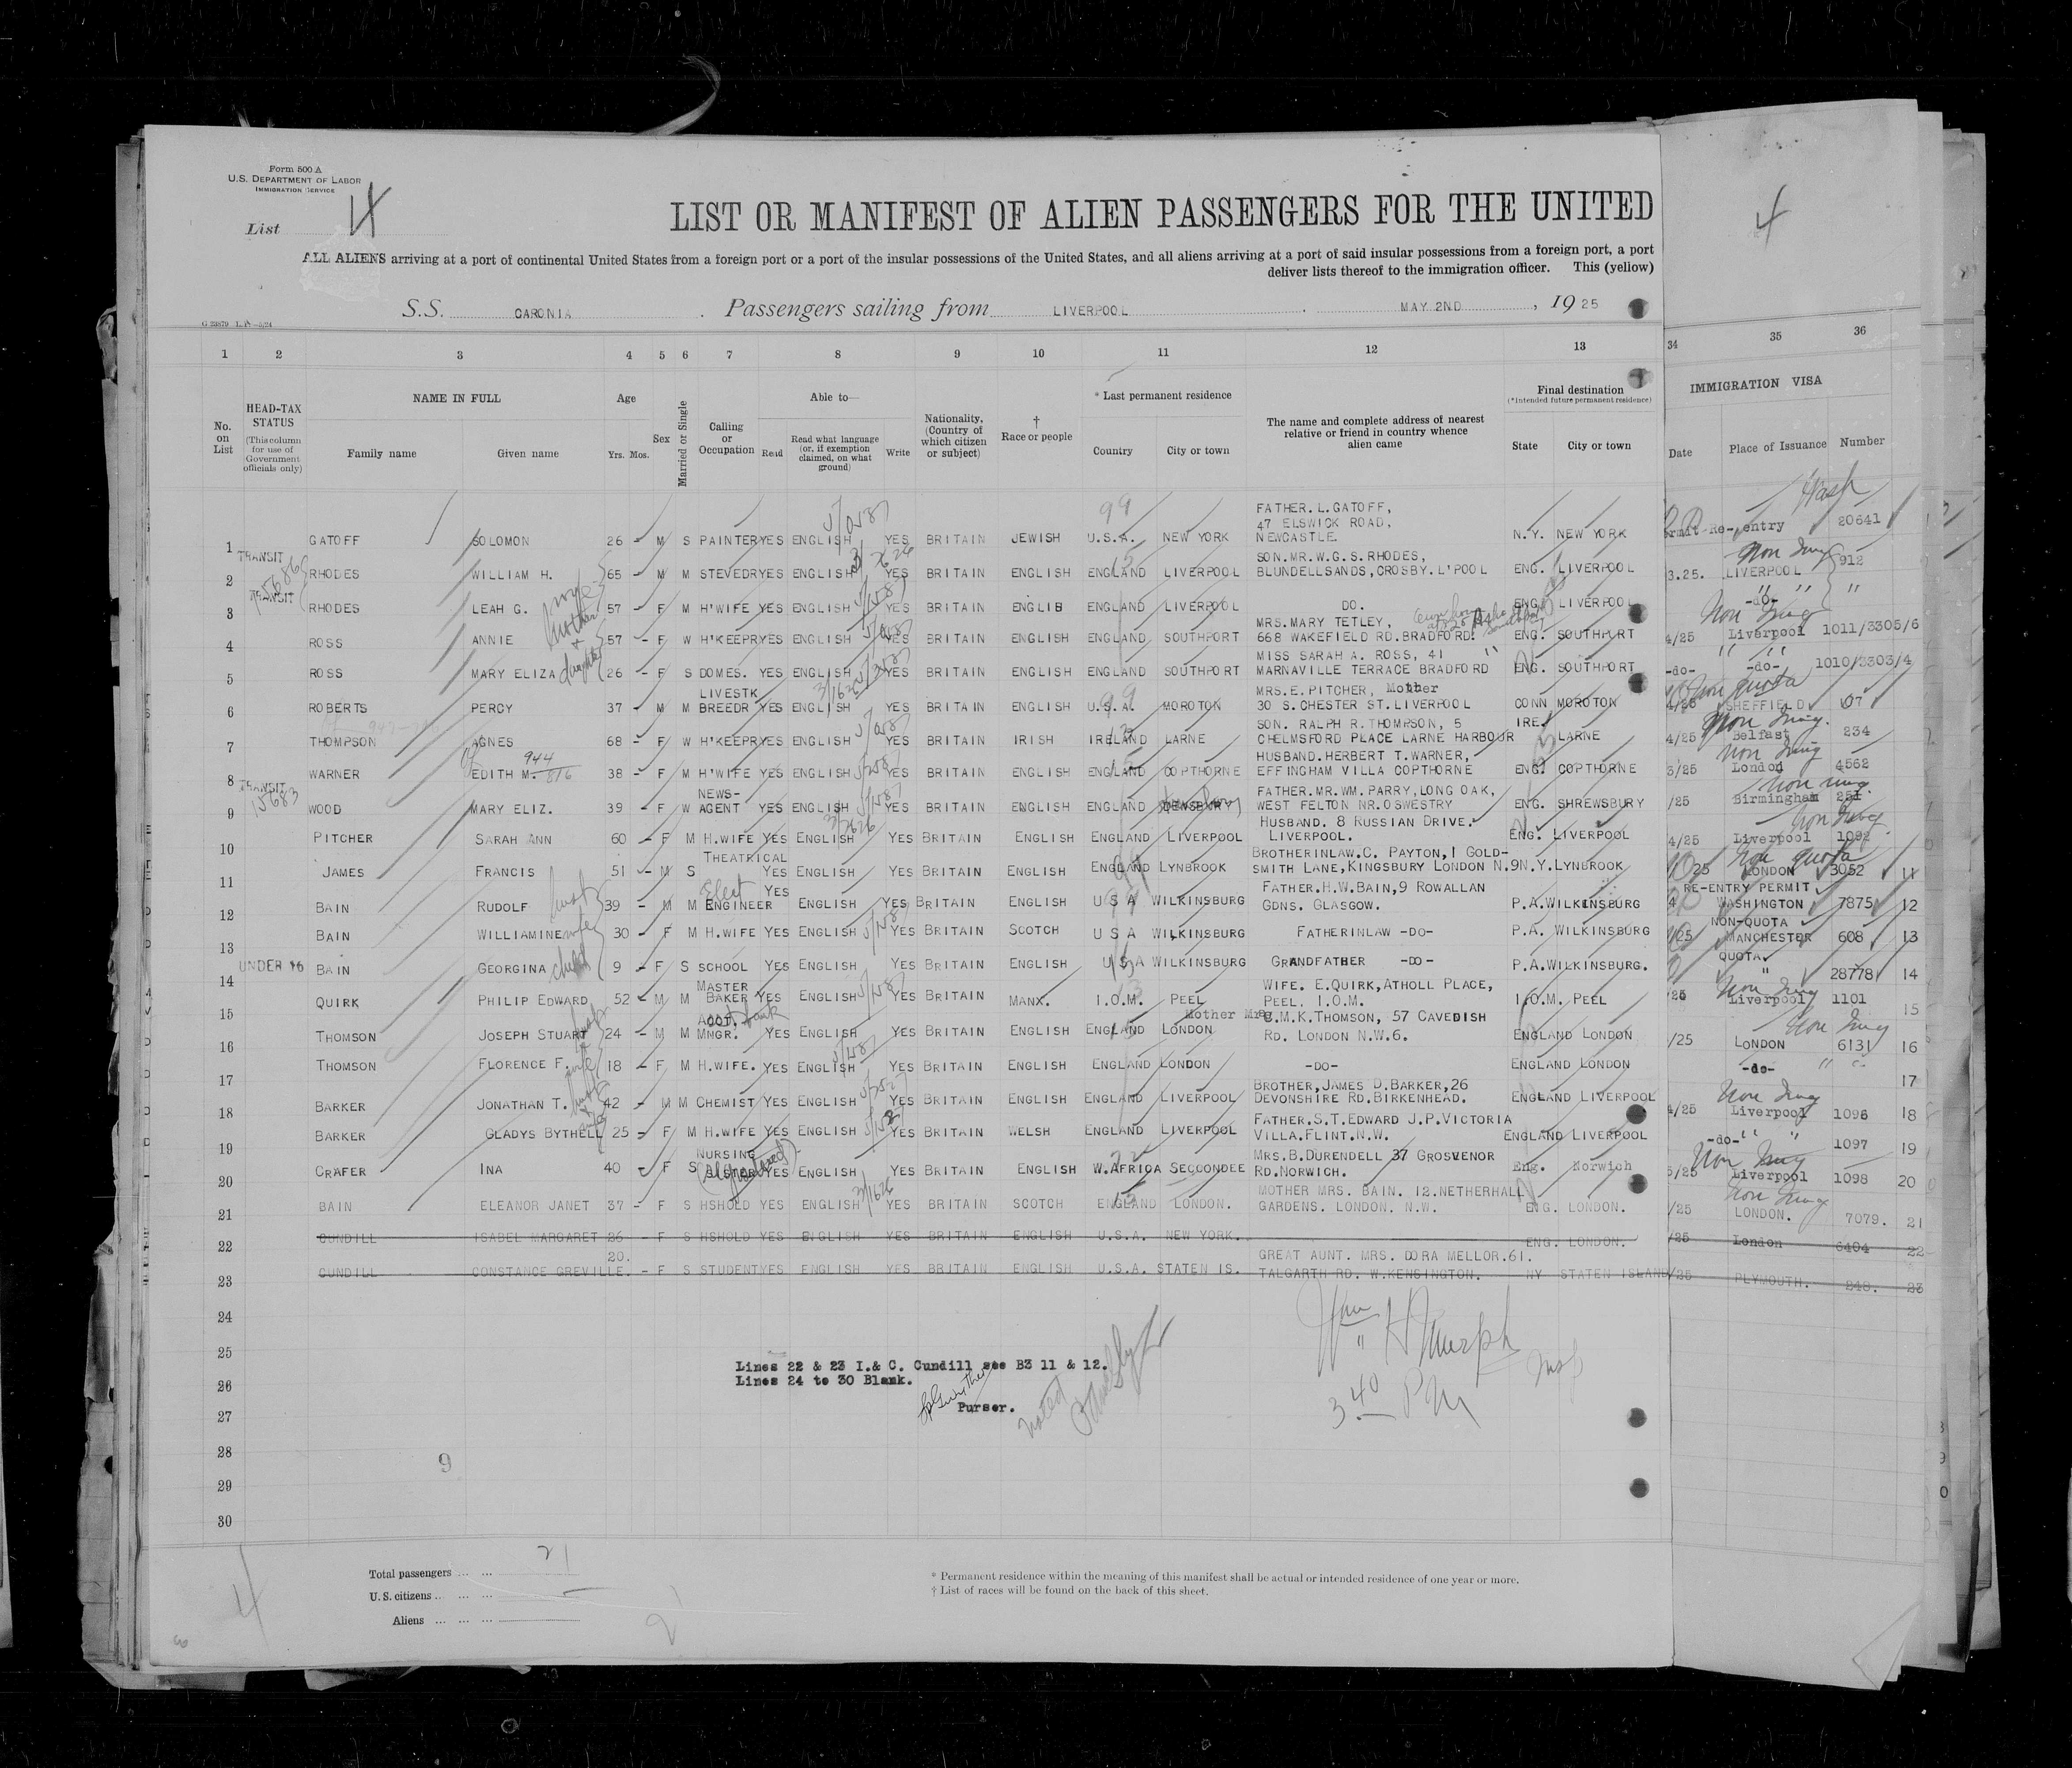 Form 500 A
U.S. DEPARTMENT OF LABOR
IMMIGRATION SERVICE
List 4
4
LIST OR MANIFEST OF ALIEN PASSENGERS FOR THE UNITED
ALL ALIENS arriving at a port of continental United States from a foreign port or a port of the insular possessions of the United States, and all aliens arriving at a port of said insular possessions from a foreign port, a port
deliver lists thereof to the immigration officer. This (yellow)
S.S. CARONIA. Passengers sailing from LIVERPOOL. MAY 2ND, 1925
1 2 3 4 5 6 7 8 9 10 11 12 13 34 35 36
No. on List
HEAD-TAX STATUS
(This column for use of Government officials only)
NAME IN FULL
Family name Given name
Age
Yrs. Mos.
Sex
Married or Single
Calling or Occupation
Able to—
Read
Read what language (or, if exemption claimed, on what ground)
Write
Nationality, (Country of which citizen or subject)
† Race or people
* Last permanent residence
Country City or town
The name and complete address of nearest relative or friend in country whence alien came
Final destination
(*Intended future permanent residence)
State City or town
IMMIGRATION VISA
Date Place of Issuance Number
1 GATOFF SOLOMON 26 - M S PAINTER YES ENGLISH YES BRITAIN JEWISH U.S.A. NEW YORK FATHER. L. GATOFF, 47 ELSWICK ROAD, NEWCASTLE. N.Y. NEW YORK Re-entry 20641
2 TRANSIT RHODES WILLIAM H. 65 - M M STEVEDR YES ENGLISH YES BRITAIN ENGLISH ENGLAND LIVERPOOL SON. MR. W.G.S. RHODES, BLUNDELLSANDS, CROSBY. L'POOL ENG. LIVERPOOL 3.25. LIVERPOOL 912
3 TRANSIT RHODES LEAH G. 57 - F M H'WIFE YES ENGLISH YES BRITAIN ENGLIS ENGLAND LIVERPOOL DO. ENG. LIVERPOOL -do- "
4 ROSS ANNIE 57 - F W H'KEEPR YES ENGLISH YES BRITAIN ENGLISH ENGLAND SOUTHPORT MRS. MARY TETLEY, 668 WAKEFIELD RD. BRADFORD. ENG. SOUTHPORT 4/25 Liverpool 1011/3305/6
5 ROSS MARY ELIZA 26 - F S DOMES. YES ENGLISH YES BRITAIN ENGLISH ENGLAND SOUTHPORT MISS SARAH A. ROSS, 41 MARNAVILLE TERRACE BRADFORD ENG. SOUTHPORT -do- -do- 1010/3303/4
6 ROBERTS PERCY 37 - M M LIVESTK BREEDR YES ENGLISH YES BRITAIN ENGLISH U.S.A. MOROTON MRS. E. PITCHER, Mother 30 S. CHESTER ST. LIVERPOOL CONN MOROTON 4/25 SHEFFIELD 107
7 THOMPSON AGNES 68 - F W H'KEEPR YES ENGLISH YES BRITAIN IRISH IRELAND LARNE SON. RALPH R. THOMPSON, 5 CHELMSFORD PLACE LARNE HARBOUR IRE. LARNE 4/25 Belfast 234
8 WARNER EDITH M. 38 - F M H'WIFE YES ENGLISH YES BRITAIN ENGLISH ENGLAND COPTHORNE HUSBAND. HERBERT T. WARNER, EFFINGHAM VILLA COPTHORNE ENG. COPTHORNE 3/25 London 4562
9 TRANSIT 15683 WOOD MARY ELIZ. 39 - F W NEWS-AGENT YES ENGLISH YES BRITAIN ENGLISH ENGLAND DEWSBURY FATHER. MR. WM. PARRY, LONG OAK, WEST FELTON NR. OSWESTRY ENG. SHREWSBURY /25 Birmingham 251
10 PITCHER SARAH ANN 60 - F M H.WIFE YES ENGLISH YES BRITAIN ENGLISH ENGLAND LIVERPOOL HUSBAND. 8 RUSSIAN DRIVE. LIVERPOOL. ENG. LIVERPOOL 4/25 Liverpool 1092
11 JAMES FRANCIS 51 - M S THEATRICAL YES ENGLISH YES BRITAIN ENGLISH ENGLAND LYNBROOK BROTHERINLAW. C. PAYTON, 1 GOLD-SMITH LANE, KINGSBURY LONDON N.9 N.Y. LYNBROOK 25 LONDON 3052 11
12 BAIN RUDOLF 39 - M M Elect ENGINEER YES ENGLISH YES BRITAIN ENGLISH U S A WILKINSBURG FATHER. H.W. BAIN, 9 ROWALLAN GDNS. GLASGOW. P.A. WILKINSBURG RE-ENTRY PERMIT WASHINGTON 7875 12
13 BAIN WILLIAMINE wife 30 - F M H.WIFE YES ENGLISH YES BRITAIN SCOTCH U S A WILKINSBURG FATHERINLAW -DO- P.A. WILKINSBURG /25 NON-QUOTA MANCHESTER 608 13
14 UNDER 16 BAIN GEORGINA child 9 - F S SCHOOL YES ENGLISH YES BRITAIN ENGLISH U S A WILKINSBURG GRANDFATHER -DO- P.A. WILKINSBURG. QUOTA " 28778 14
15 QUIRK PHILIP EDWARD 52 - M M MASTER BAKER YES ENGLISH YES BRITAIN MANX. I.O.M. PEEL WIFE. E. QUIRK, ATHOLL PLACE, PEEL. I.O.M. I.O.M. PEEL /25 Liverpool 1101 15
16 THOMSON JOSEPH STUART 24 - M M MNGR. YES ENGLISH YES BRITAIN ENGLISH ENGLAND LONDON Mother Mrs C.M.K. THOMSON, 57 CAVEDISH RD. LONDON N.W.6. ENGLAND LONDON /25 LONDON 6131 16
17 THOMSON FLORENCE F. wife 18 - F M H.WIFE. YES ENGLISH YES BRITAIN ENGLISH ENGLAND LONDON -DO- ENGLAND LONDON -do- " " 17
18 BARKER JONATHAN T. 42 - M M CHEMIST YES ENGLISH YES BRITAIN ENGLISH ENGLAND LIVERPOOL BROTHER, JAMES D. BARKER, 26 DEVONSHIRE RD. BIRKENHEAD. ENGLAND LIVERPOOL 4/25 Liverpool 1096 18
19 BARKER GLADYS BYTHELL 25 - F M H.WIFE YES ENGLISH YES BRITAIN WELSH ENGLAND LIVERPOOL FATHER. S.T. EDWARD J.P. VICTORIA VILLA. FLINT. N.W. ENGLAND LIVERPOOL -do- " " 1097 19
20 CRAFER INA 40 - F S NURSING SISTER YES ENGLISH YES BRITAIN ENGLISH W.AFRICA SECCONDEE MRS. B. DURENDELL 37 GROSVENOR RD. NORWICH. Eng. Norwich 5/25 Liverpool 1098 20
21 BAIN ELEANOR JANET 37 - F S HSHOLD YES ENGLISH YES BRITAIN SCOTCH ENGLAND LONDON. MOTHER MRS. BAIN. 12. NETHERHALL GARDENS. LONDON. N.W. ENG. LONDON. /25 LONDON. 7079. 21
22 CUNDILL ISABEL MARGARET 26 - F S HSHOLD YES ENGLISH YES BRITAIN ENGLISH U.S.A. NEW YORK. ENG. LONDON. /25 London 6404 22
23 CUNDILL CONSTANCE GREVILLE. 20. - F S STUDENT YES ENGLISH YES BRITAIN ENGLISH U.S.A. STATEN IS. GREAT AUNT. MRS. DORA MELLOR. 61. TALGARTH RD. W. KENSINGTON. NY STATEN ISLAND /25 PLYMOUTH. 248. 23
24
25
26
27
28
29
30
Lines 22 & 23 I. & C. Cundill see B3 11 & 12.
Lines 24 to 30 Blank.
Purser.
noted
3 40 PM
9
Total passengers 21
U.S. citizens
Aliens
4
* Permanent residence within the meaning of this manifest shall be actual or intended residence of one year or more.
† List of races will be found on the back of this sheet.